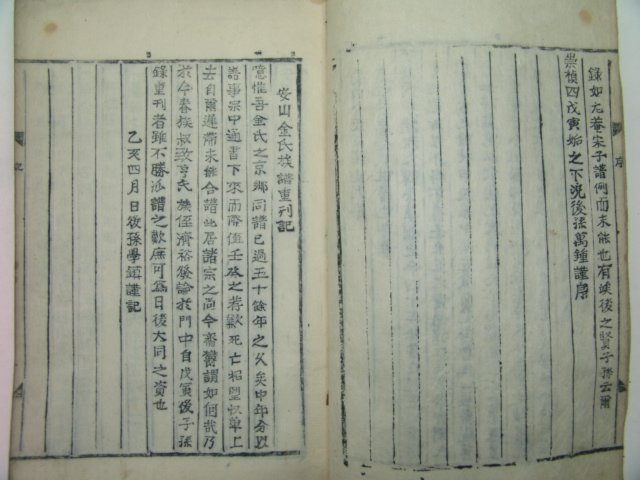 序
錄如尤菴宋子譜例而未能也有竢後之賢子孫云爾
崇禎四戊寅姤之下浣後孫萬鍾謹序
安山金氏族譜重刊記
憶惟吾金氏之京鄕同譜已過五十餘年之久矣中年分以
譜事宗中通書下來而際値壬癸之荐歉死亡相望収單上
去自爾遷滯未能合譜此居諸宗之尙今齋鬱謂如何哉乃
於今春族叔致亨氏族侄濟裕發論於門中自戊寅後子孫
錄重刊者雖不勝派譜之歎庶可爲日後大同之資也
乙亥四月日後孫學鎭謹記
記